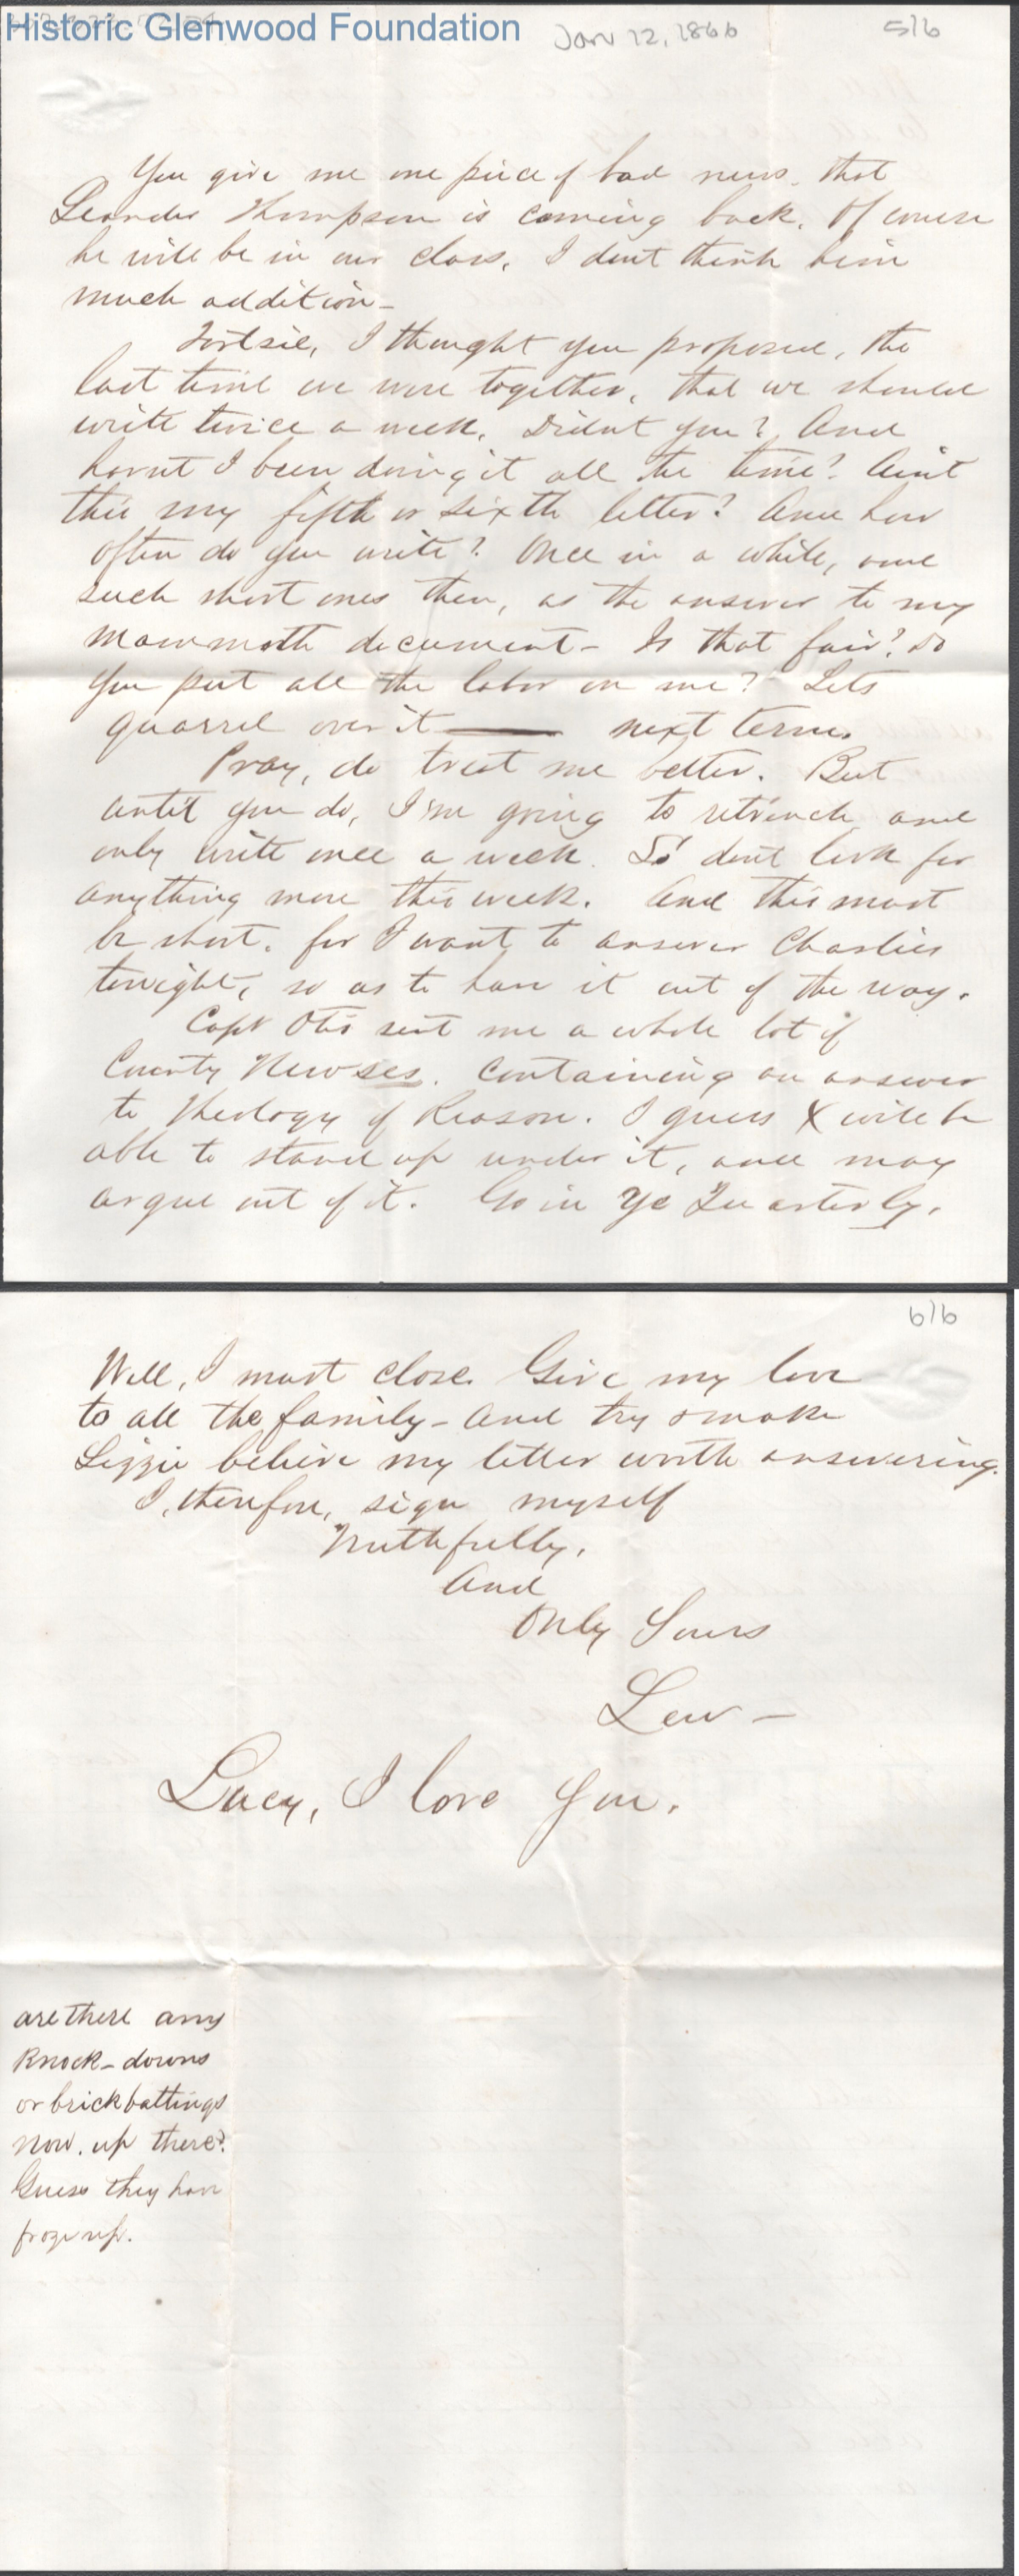 Historic Glenwood Foundation
Jan 12, 1866
5/6
You give me one piece of bad news. That
Leander Thompson is coming back. Of course
he will be in our class. I dont think him
much addition -
I thought you proposed, the
last time we were together, that we should
write twice a week. Didnt you? And
havnt I been doing it all the time? Aint
this my fifth or sixth letter? And how
often do you write? Once in a while, and
such short ones then, as the answer to my
mammoth document - Is that fair? Do
you put all the labor on me? Lets
quarrel over it — next term.
Pray, do treat me better. But
until you do, I'm going to retrench and
only write once a week. So dont look for
anything more this week. And this must
be short. for I want to answer Charlies
tonight, so as to have it out of the way.
Capt Otis sent me a whole lot of
County Newses. containing an answer
to Theology of Reason. I guess X will be
able to stand up under it, and may
argue out of it. Go in Ye Quarterly.
6/6
Well, I must close. Give my love
to all the family - And try & make
Lizzie believe my letter worth answering.
I, therefore, sign myself
Truthfully,
And
Only Yours
Lew -
Lucy, I love you.
are there any
Knock-downs
or brickbattings
now. up there?
Guess they have
froze up.